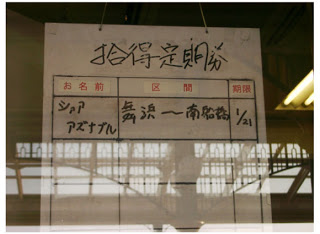 拾得定期券
お名前 区間 期限
シャア
アズナブル
舞浜〜南船橋 1/21